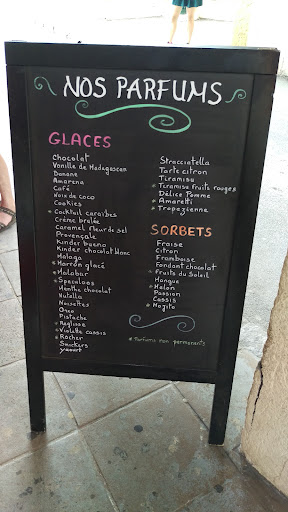 NOS PARFUMS
GLACES
Chocolat
Vanille de Madagascar
Banane
Amarena
Café
Noix de coco
Cookies
* Cocktail caraïbes
Crème brûlée
Caramel fleur de sel
Provençale
Kinder bueno
Kinder chocolat blanc
Malaga
* Marron glacé
* Malabar
* Speculoos
Menthe chocolat
Nutella
Noisettes
Oreo
Pistache
* Réglisse
* Violette cassis
* Rocher
Snickers
yaourt
Stracciatella
Tarte citron
Tiramisu
* Tiramisu fruits rouges
* Délice Pomme
* Amaretti
* Tropézienne
SORBETS
Fraise
Citron
Framboise
Fondant chocolat
* Fruits du Soleil
Mangue
* Melon
Passion
Cassis
* Mojito
* parfums non permanents